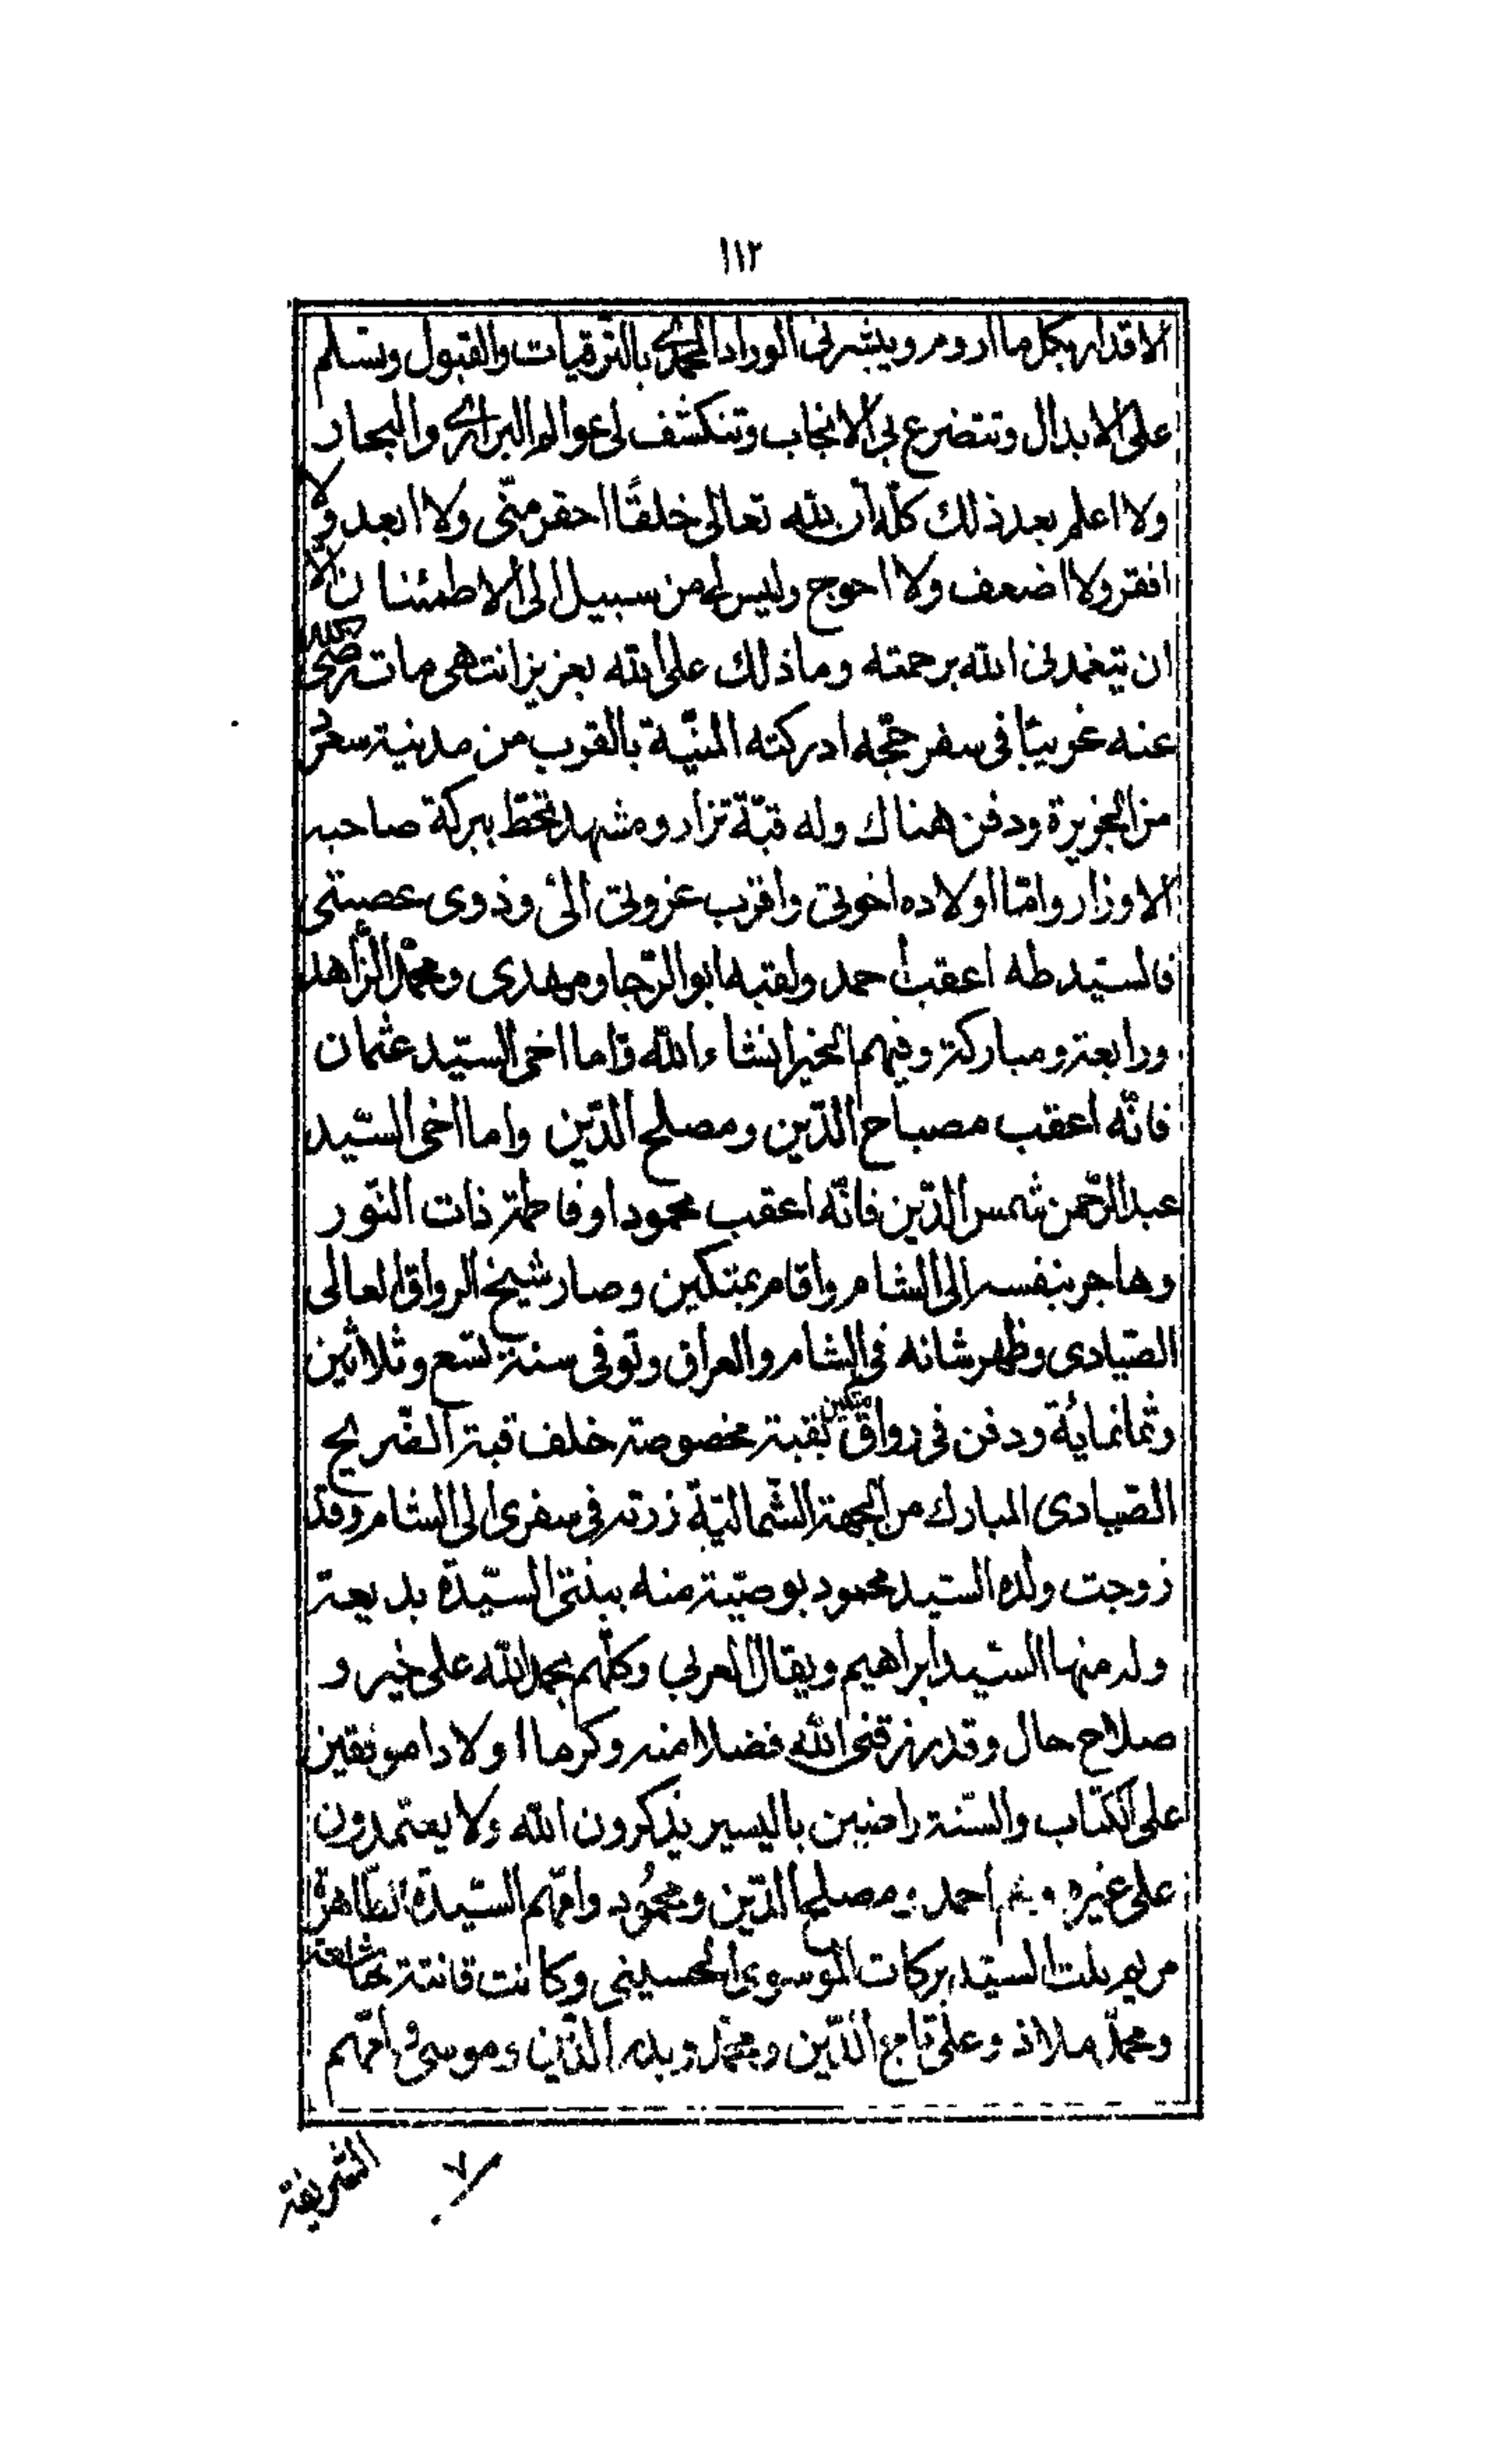 ١١٢
الاقدار بكل ما اروم ويبشرنى الوارد المحمدى بالترقيات والقبول وتسلم
على الابدال وتتضرع بى الانجاب وتنكشف لى عوالم البرارى والبحار
ولا اعلم بعد ذلك كله ان لله تعالى خلقًا احقر منّى ولا ابعد ولا
افقر ولا اضعف ولا احوج وليس لى من سبيل الى الاطمئنان الا
ان يتغمدنى الله برحمته وما ذلك على الله بعزيز انتهى مات رضى الله
عنه غريبًا فى سفر حجّه ادركته المنيّة بالقرب من مدينة سعرد
من الجزيرة ودفن هناك وله قبّة تزار ومشهد تحطّ ببركة صاحبه
الاوزار وامّا اولاده اخوتى واقرب عزوتى الىّ وذوى عصبتى
فالسيّد طه اعقب احمد ولقبه ابو الرّجا ومهدى ومحمّد الزّاهد
ورابعة ومباركة وفيهم الخير انشاء الله واما اخى السيّد عثمان
فانّه اعقب مصباح الدّين ومصلح الدّين واما اخى السّيد
عبد الرّحمن شمس الدّين فانّه اعقب محمودا وفاطمة ذات النّور
وهاجر بنفسه الى الشام واقام بمتكين وصار شيخ الرواق العالى
الصّيادى وظهر شانه فى الشام والعراق وتوفى سنة تسع وثلاثين
وثمانمائة ودفن فى رواق متكين بقبة مخصوصة خلف قبة الضّريح
الصّيادى المبارك من الجهة الشّماليّة زرته فى سفرى الى الشام وقد
زوجت ولده السّيد محمود بوصيّة منه ببنتى السيّدة بديعة
ولد منها السّيد ابراهيم ويقال العربى وكلّهم بحمد الله على خير و
صلاح حال وقد رزقنى الله فضلا منه وكرما اولادا موفقين
على الكتاب والسّنة راضين باليسير يذكرون الله ولا يعتمدون
على غيره وهم احمد ومصلح الدّين ومحمُود وامّهم السّيدة الطّاهرة
مريم بنت السيّد بركات الموسوى الحسينى وكانت قانتة خاشعة
ومحمّد ملاذ وعلى تاج الدّين ومحمّد وبدر الدّين وموسى وامّهم
الشريفة